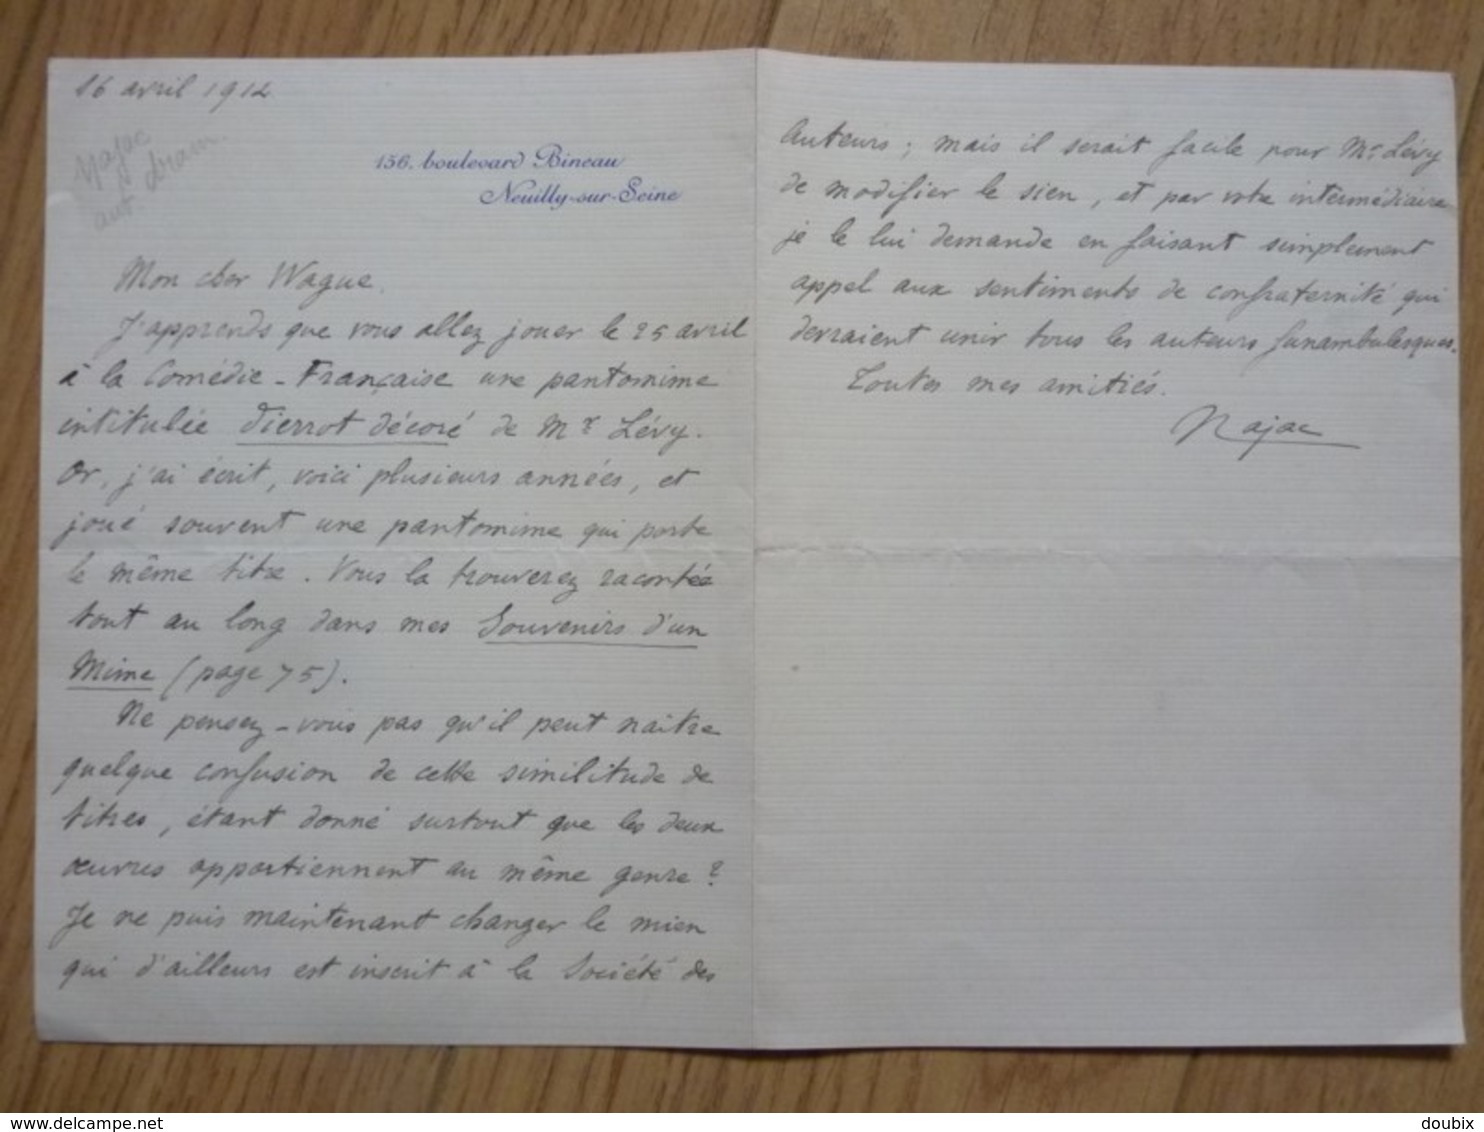 16 avril 1912
Najac
aut dram.
156. boulevard Bineau
Neuilly-sur-Seine
Mon cher Wague,
J'apprends que vous allez jouer le 25 avril
à la Comédie-Française une pantomime
intitulée Pierrot décoré de Mr Lévy.
Or, j'ai écrit, voici plusieurs années, et
joué souvent une pantomime qui porte
le même titre. Vous la trouverez racontée
tout au long dans mes Souvenirs d'un
Mime (page 75).
Ne pensez-vous pas qu'il peut naître
quelque confusion de cette similitude de
titres, étant donné surtout que les deux
œuvres appartiennent au même genre?
Je ne puis maintenant changer le mien
qui d'ailleurs est inscrit à la Société des
Auteurs; mais il serait facile pour Mr Lévy
de modifier le sien, et par votre intermédiaire
je le lui demande en faisant simplement
appel aux sentiments de confraternité qui
devraient unir tous les auteurs funambulesques.
Toutes mes amitiés.
Najac
delcampe.net
doubix